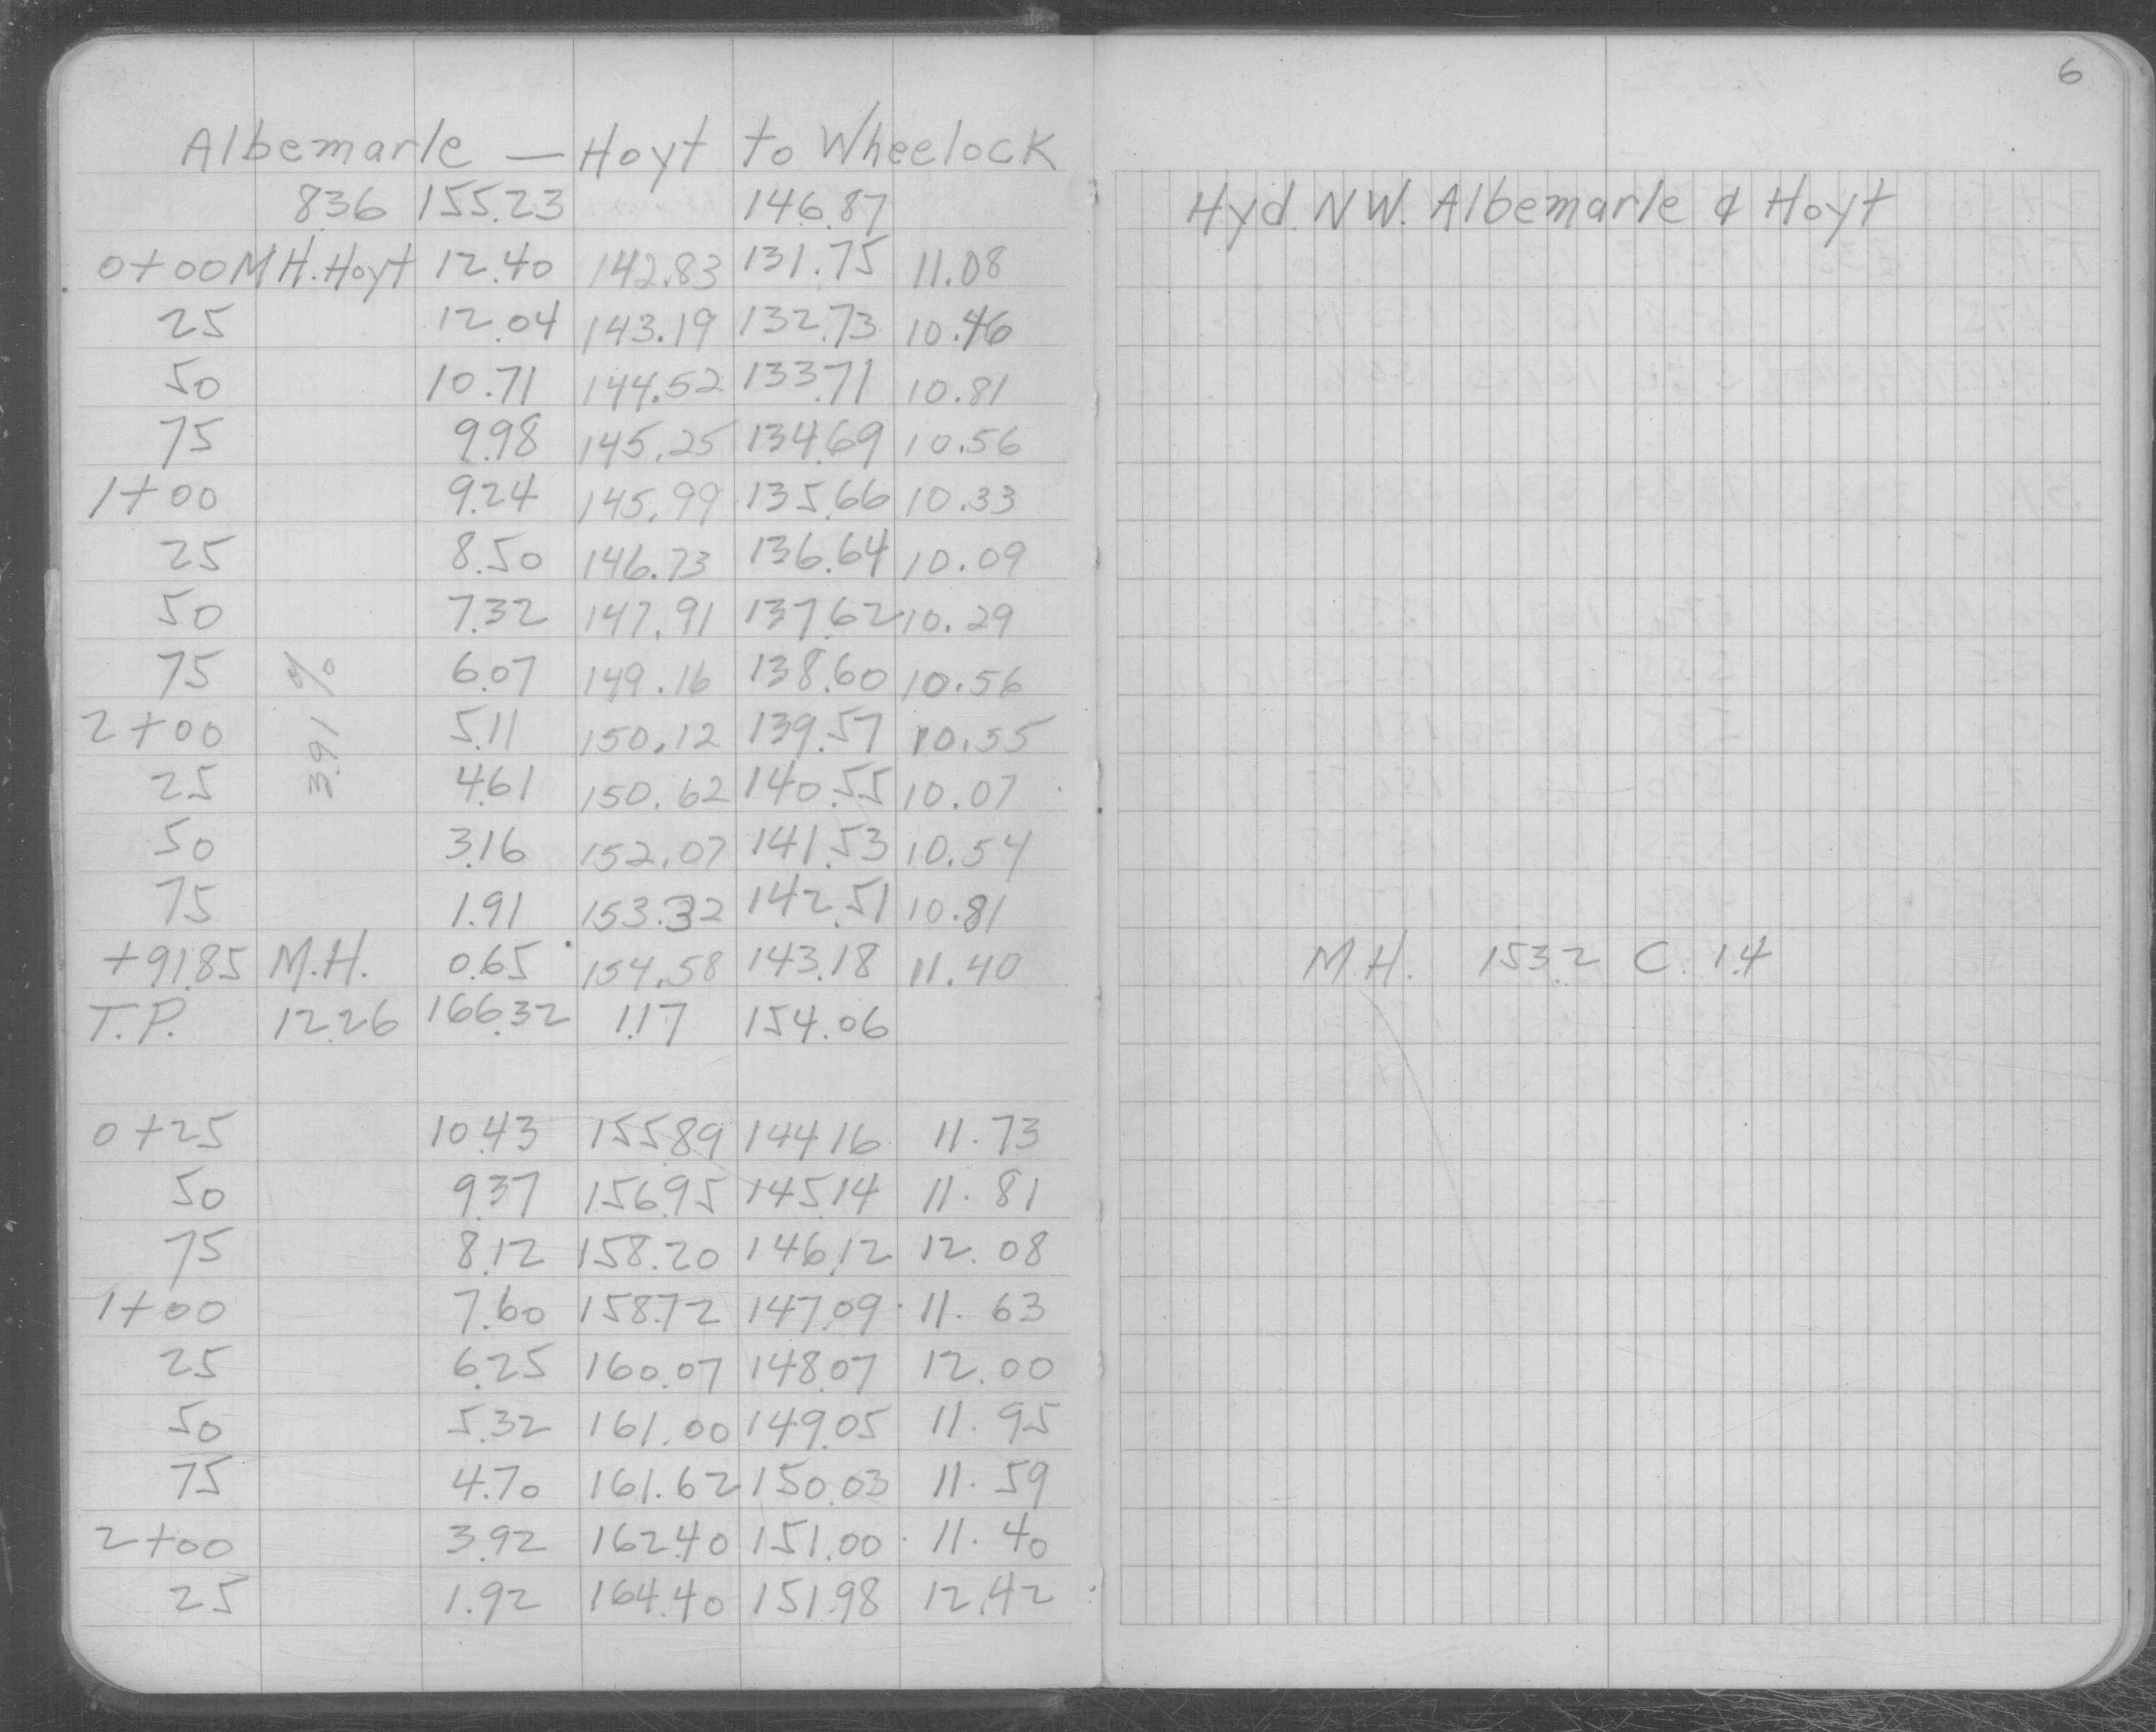 6
Albemarle — Hoyt to Wheelock
8.36 155.23 146.87
0+00 M.H. Hoyt 12.40 142.83 131.75 11.08
25 12.04 143.19 132.73 10.46
50 10.71 144.52 133.71 10.81
75 9.98 145.25 134.69 10.56
1+00 9.24 145.99 135.66 10.33
25 8.50 146.73 136.64 10.09
50 7.32 147.91 137.62 10.29
75 6.07 149.16 138.60 10.56
2+00 5.11 150.12 139.57 10.55
25 4.61 150.62 140.55 10.07
50 3.16 152.07 141.53 10.54
75 1.91 153.32 142.51 10.81
+91.85 M.H. 0.65 154.58 143.18 11.40
T.P. 12.26 166.32 1.17 154.06
3.91 %
0+25 10.43 155.89 144.16 11.73
50 9.37 156.95 145.14 11.81
75 8.12 158.20 146.12 12.08
1+00 7.60 158.72 147.09 11.63
25 6.25 160.07 148.07 12.00
50 5.32 161.00 149.05 11.95
75 4.70 161.62 150.03 11.59
2+00 3.92 162.40 151.00 11.40
25 1.92 164.40 151.98 12.42
Hyd. N.W. Albemarle & Hoyt
M.H. 153.2 C. 1.4